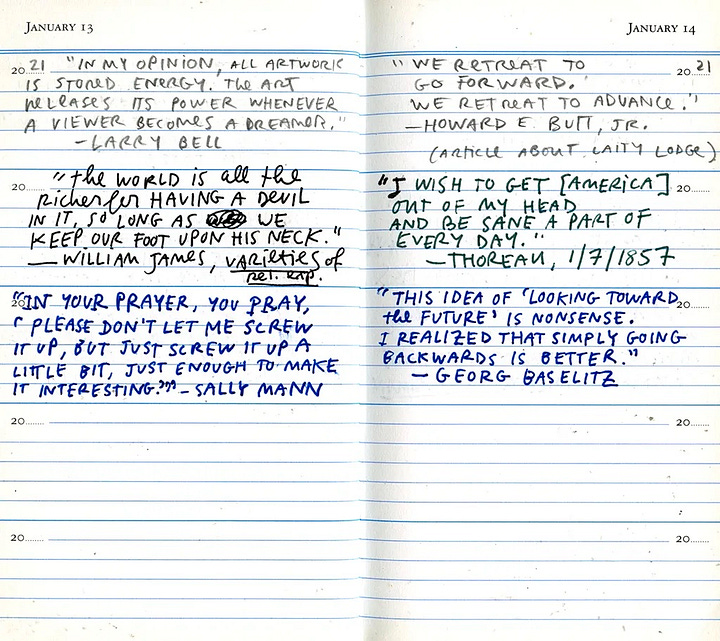 JANUARY 13
2021 "IN MY OPINION, ALL ARTWORK
IS STORED ENERGY. THE ART
RELEASES ITS POWER WHENEVER
A VIEWER BECOMES A DREAMER."
—LARRY BELL
20 "the WORLD IS all the
richer for HAVING A DEVIL
IN IT, SO LONG AS WE
KEEP OUR FOOT UPON HIS NECK."
— WILLIAM JAMES, varieties of
rel. exp.
20 "IN YOUR PRAYER, YOU PRAY,
' PLEASE DON'T LET ME SCREW
IT UP, BUT JUST SCREW IT UP A
LITTLE BIT, JUST ENOUGH TO MAKE
IT INTERESTING.'" – SALLY MANN
20
20
JANUARY 14
"WE RETREAT TO 2021
GO FORWARD.
WE RETREAT TO ADVANCE."
—HOWARD E. BUTT, JR.
(ARTICLE ABOUT LAITY LODGE)
"I WISH TO GET [AMERICA] 20
OUT OF MY HEAD
AND BE SANE A PART OF
EVERY DAY."
—THOREAU, 1/7/1857
"THIS IDEA OF 'LOOKING TOWARD 20
the FUTURE' IS NONSENSE.
I REALIZED THAT SIMPLY GOING
BACKWARDS IS BETTER."
— GEORG BASELITZ
20
20